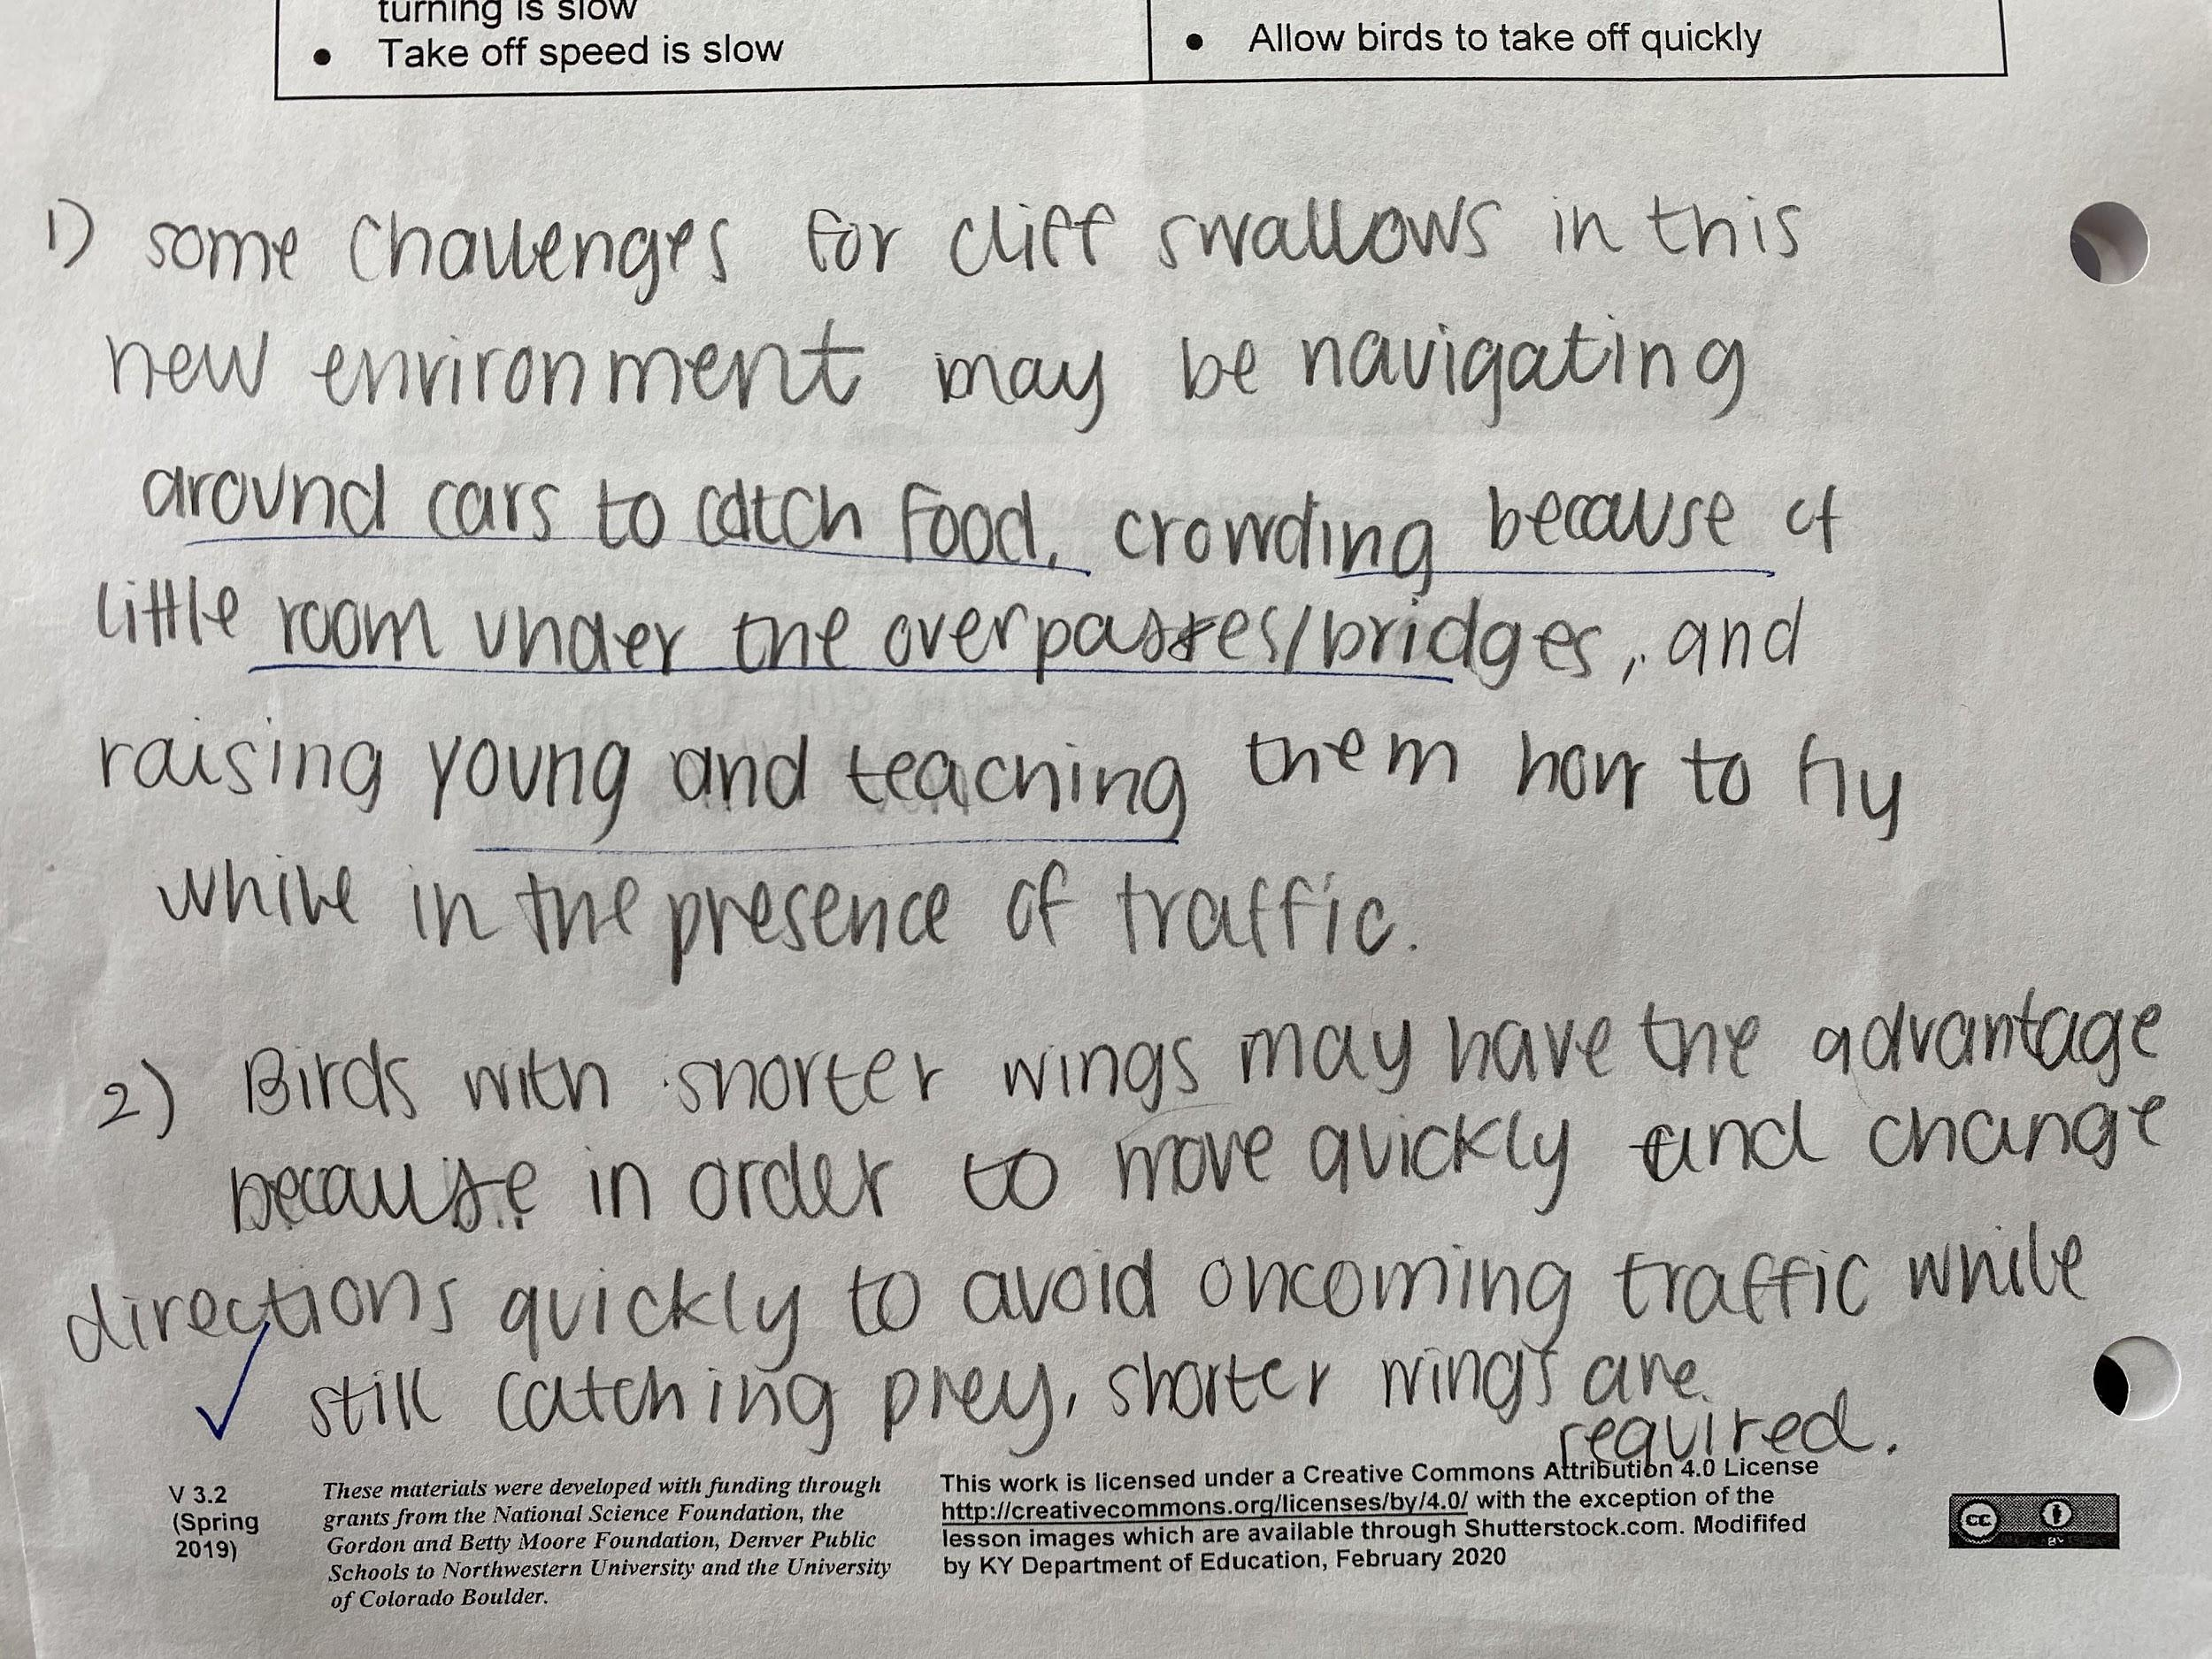 turning is slow
• Take off speed is slow
• Allow birds to take off quickly
1) some challenges for cliff swallows in this
new environment may be navigating
around cars to catch food, crowding because of
little room under the overpasses/bridges, and
raising young and teaching them how to fly
while in the presence of traffic.
2) Birds with shorter wings may have the advantage
because in order to move quickly and change
directions quickly to avoid oncoming traffic while
still catching prey, shorter wings are
required.
V 3.2
(Spring
2019)
These materials were developed with funding through
grants from the National Science Foundation, the
Gordon and Betty Moore Foundation, Denver Public
Schools to Northwestern University and the University
of Colorado Boulder.
This work is licensed under a Creative Commons Attribution 4.0 License
http://creativecommons.org/licenses/by/4.0/ with the exception of the
lesson images which are available through Shutterstock.com. Modififed
by KY Department of Education, February 2020
cc
BY